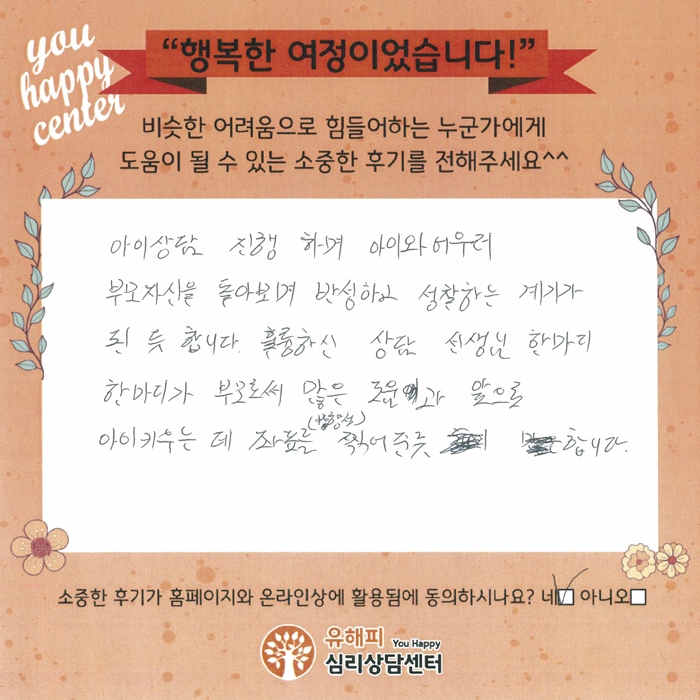 you
happy
center
“행복한 여정이었습니다!”
비슷한 어려움으로 힘들어하는 누군가에게
도움이 될 수 있는 소중한 후기를 전해주세요^^
아이상담 진행 하며 아이와 어우러
부모자신을 돌아보며 반성하고 성찰하는 계기가
된 듯 합니다. 훌륭하신 상담 선생님 한마디
한마디가 부모로써 많은 도움과 앞으로
(방향성)
아이키우는 데 좌표를 찍어준듯 합니다.
소중한 후기가 홈페이지와 온라인상에 활용됨에 동의하시나요? 네 아니오
유해피 You Happy
심리상담센터